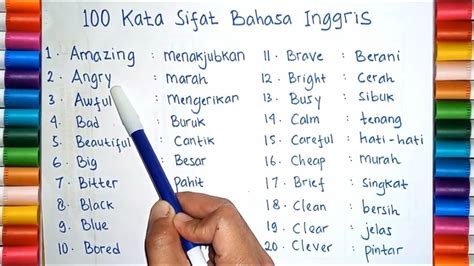 100 Kata Sifat Bahasa Inggris
1. Amazing : menakjubkan
2. Angry : marah
3. Awful : mengerikan
4. Bad : Buruk
5. Beautiful : Cantik
6. Big : Besar
7. Bitter : pahit
8. Black
9. Blue
10. Bored
11. Brave : Berani
12. Bright : Cerah
13. Busy : sibuk
14. Calm : tenang
15. Careful : hati-hati
16. Cheap : murah
17. Brief : singkat
18. Clean : bersih
19. Clear : jelas
20. Clever : pintar